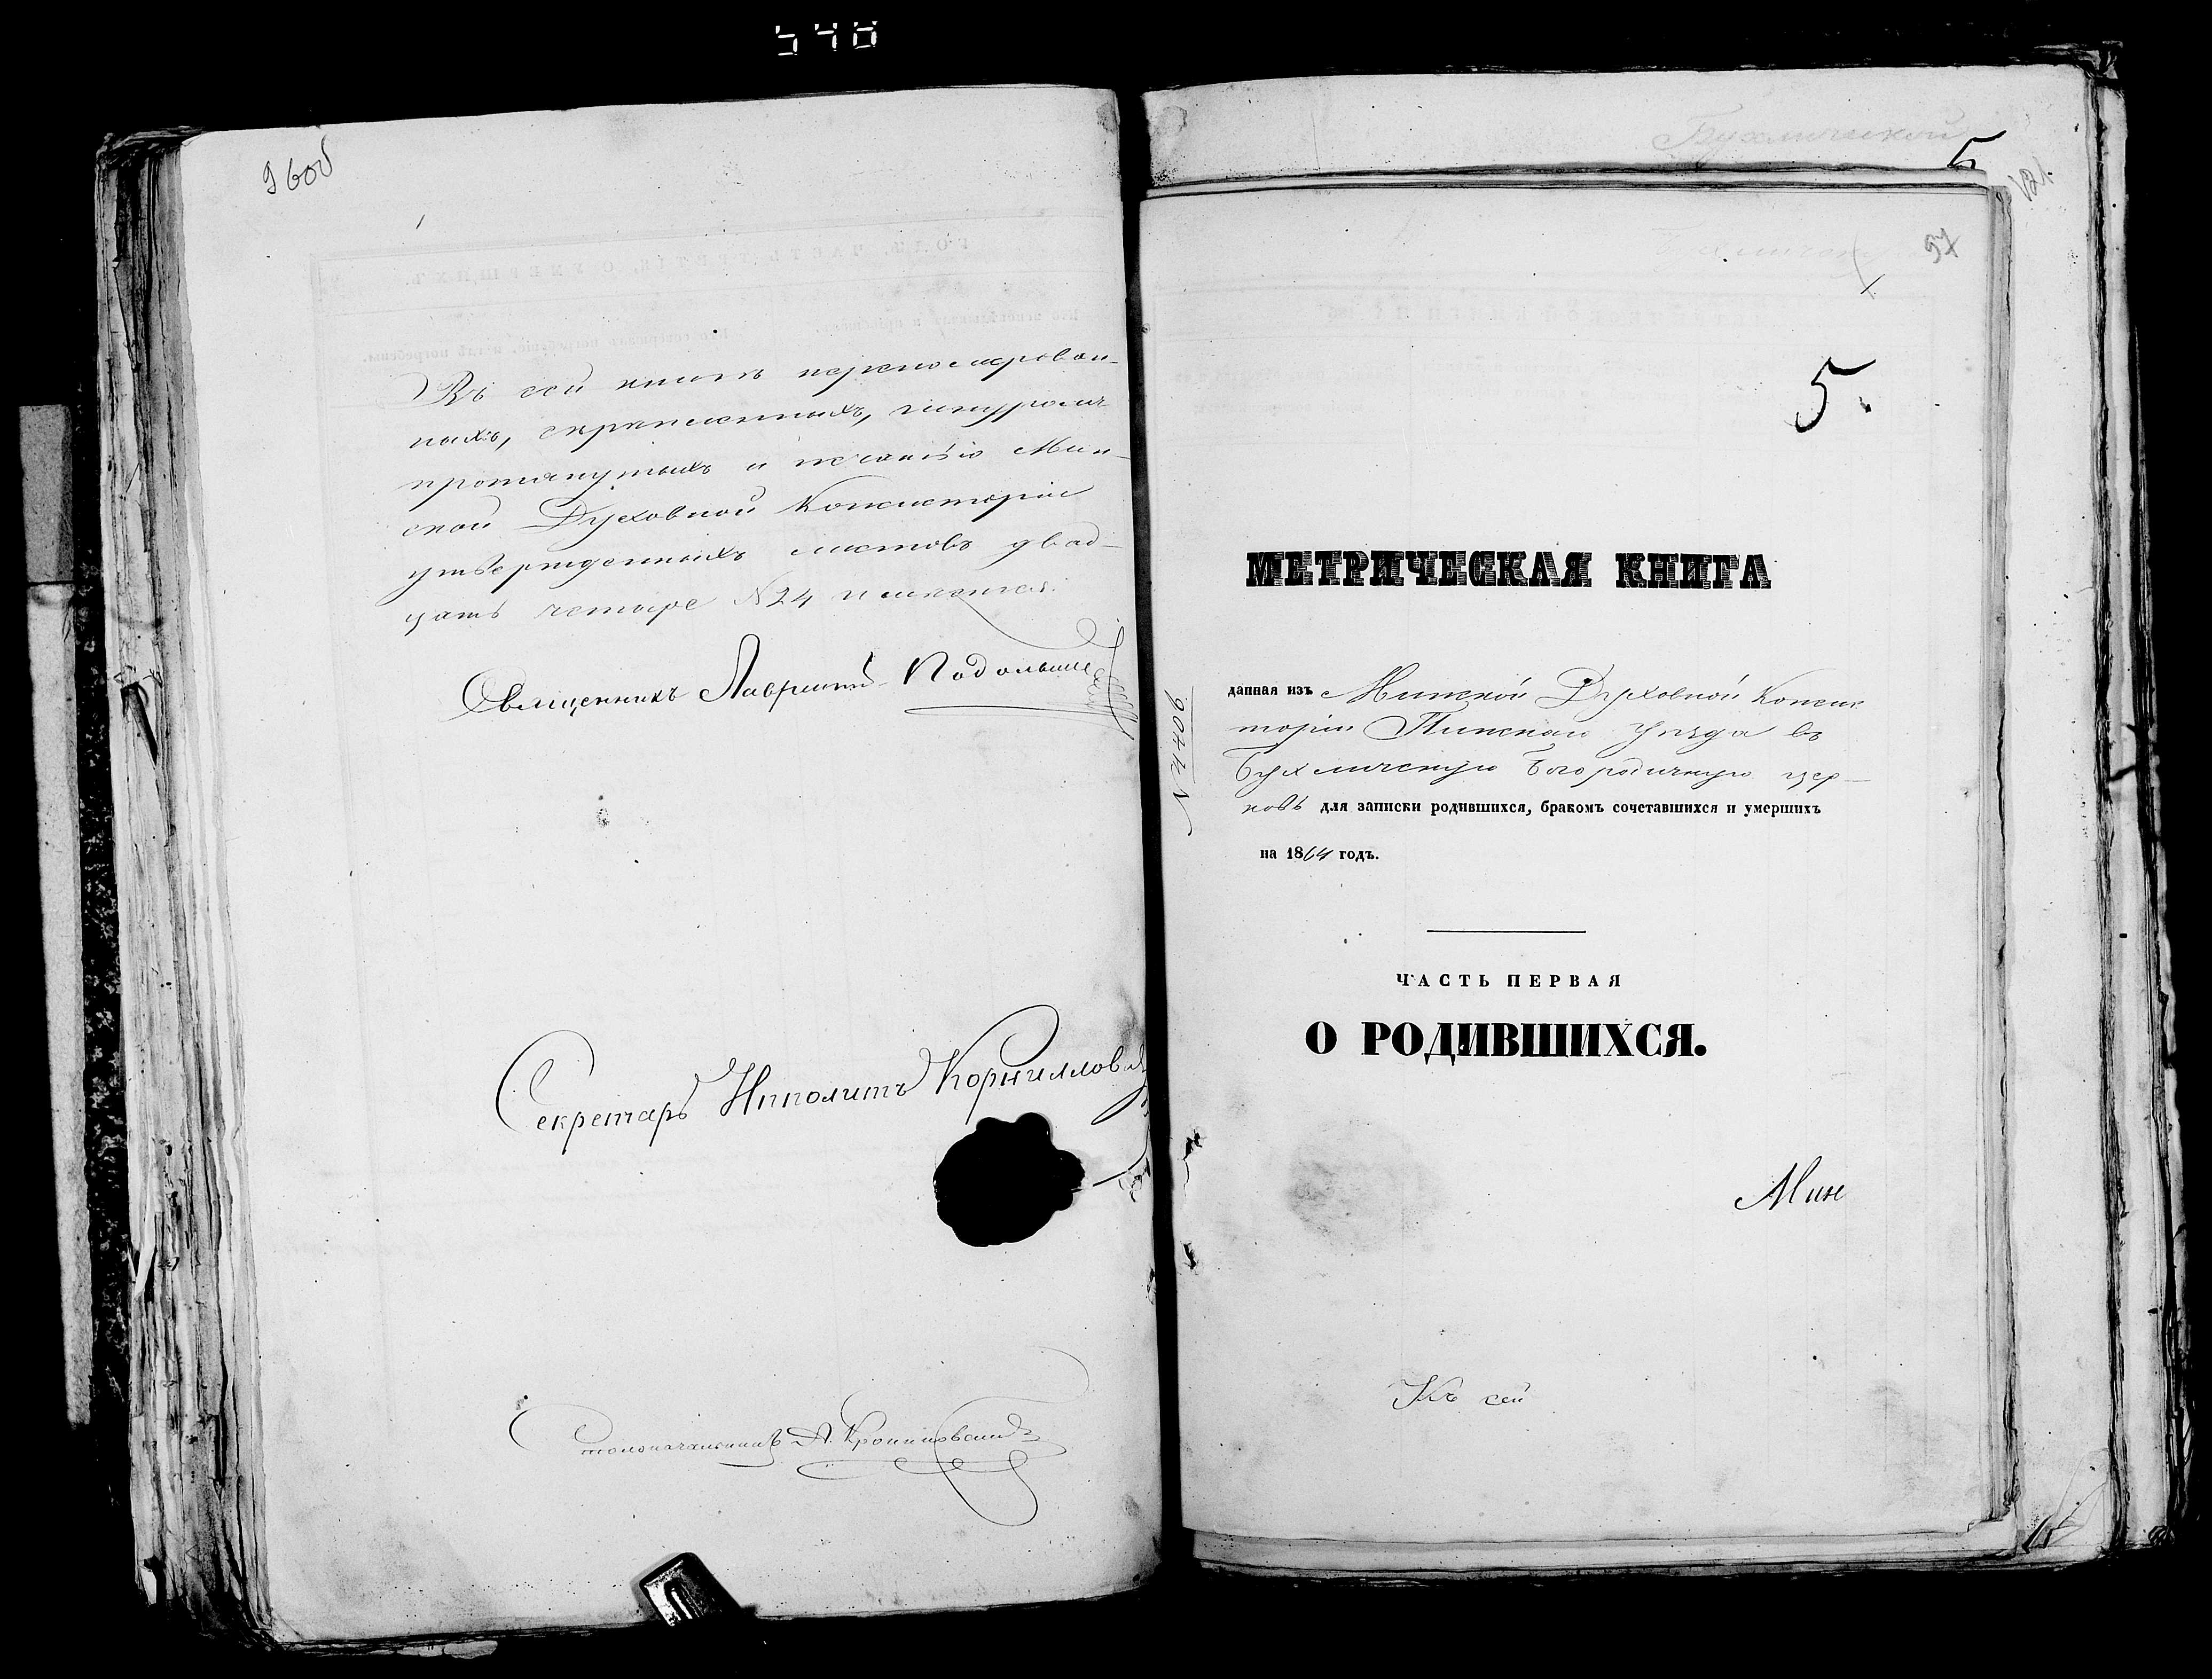 548
96 об
Въ сей книгѣ перенумерован-
ныхъ, скрѣпленныхъ, шнуромъ
протянутыхъ и печатью Мин-
ской Духовной Консисторіи
утвержденныхъ листовъ двад-
цать четыре №24 имѣется.
Священникъ Лаврентій
Секретарь Ипполитъ Корнилловъ
Столоначальникъ А.
Бухличской
5
121
97
5.
МЕТРИЧЕСКАЯ КНИГА
данная изъ Минской Духовной Консис
торіи Пинскаго уѣзда въ
Бухличскую Богородичную цер-
ковь для записки родившихся, бракомъ сочетавшихся и умершихъ
на 1864 годъ.
ЧАСТЬ ПЕРВАЯ
О РОДИВШИХСЯ.
Мин
Къ сей